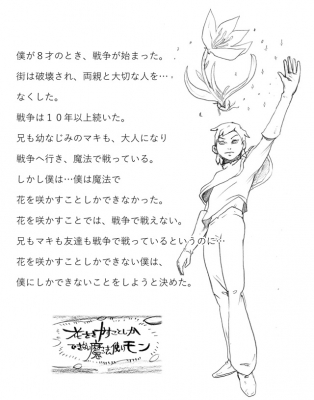 僕が８才のとき、戦争が始まった。
街は破壊され、両親と大切な人を…
なくした。
戦争は１０年以上続いた。
兄も幼なじみのマキも、大人になり
戦争へ行き、魔法で戦っている。
しかし僕は…僕は魔法で
花を咲かすことしかできなかった。
花を咲かすことでは、戦争で戦えない。
兄もマキも友達も戦争で戦っているというのに…
花を咲かすことしかできない僕は、
僕にしかできないことをしようと決めた。
花をさかすことしか
できない魔法使いモン